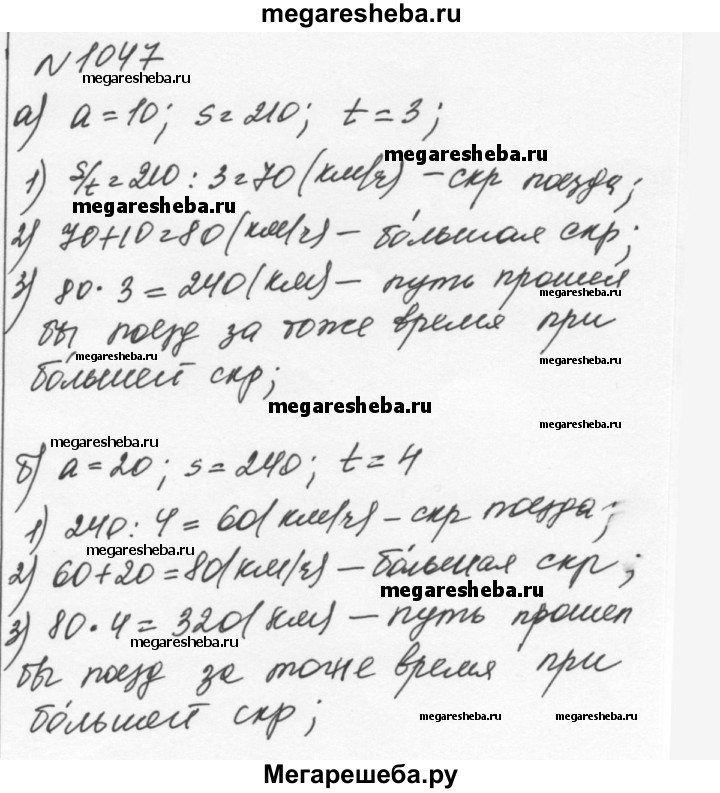 megaresheba.ru
№1047
megaresheba.ru
а) a=10; s=210; t=3;
megaresheba.ru
1) s/t=210:3=70(км/ч) - скр поезда;
megaresheba.ru
2) 70+10=80(км/ч) - бо́льшая скр;
3) 80·3=240(км) - путь прошел
megaresheba.ru
бы поезд за тоже время при
megaresheba.ru
megaresheba.ru
бо́льшей скр;
megaresheba.ru
megaresheba.ru
megaresheba.ru
б) a=20; s=240; t=4
1) 240:4=60(км/ч) - скр поезда;
megaresheba.ru
2) 60+20=80(км/ч) - бо́льшая скр;
megaresheba.ru
3) 80·4=320(км) - путь прошел
megaresheba.ru
бы поезд за тоже время при
бо́льшей скр;
megaresheba.ru
megaresheba.ru
megaresheba.ru
Мегарешеба.ру